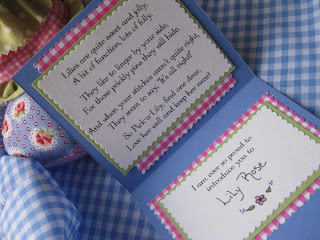 Lilies are quite sweet and jolly,
A bit of function, lots of folly.
They like to linger by your side,
For those prickly pins they will hide.
And when your stitches aren't quite right,
They seem to say, "It's all right!"
So Pick-a'Lily, find one dear...
Love her well and keep her near!
I am ever so proud to
introduce you to
Lily Rose